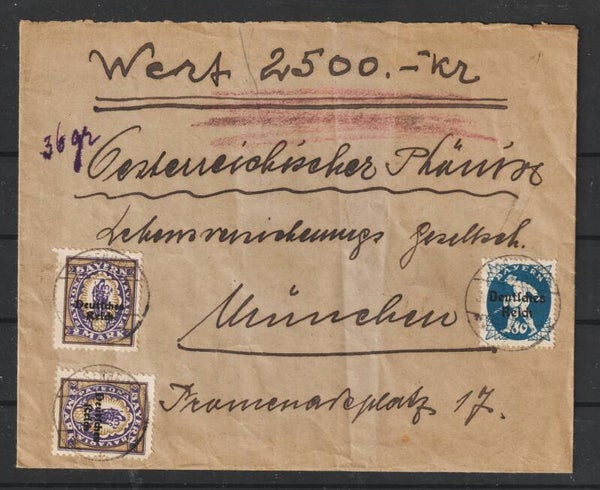 Wert 2500.- kr
36 gr
Oesterreichischer Phönix
Lebensversicherungs Gesellsch.
München
Promenadeplatz 17.
BAYERN
Deutsches
Reich
MARK
BAYERN
Deutsches
Reich
60
BAYERN
Deutsches
Reich
MARK